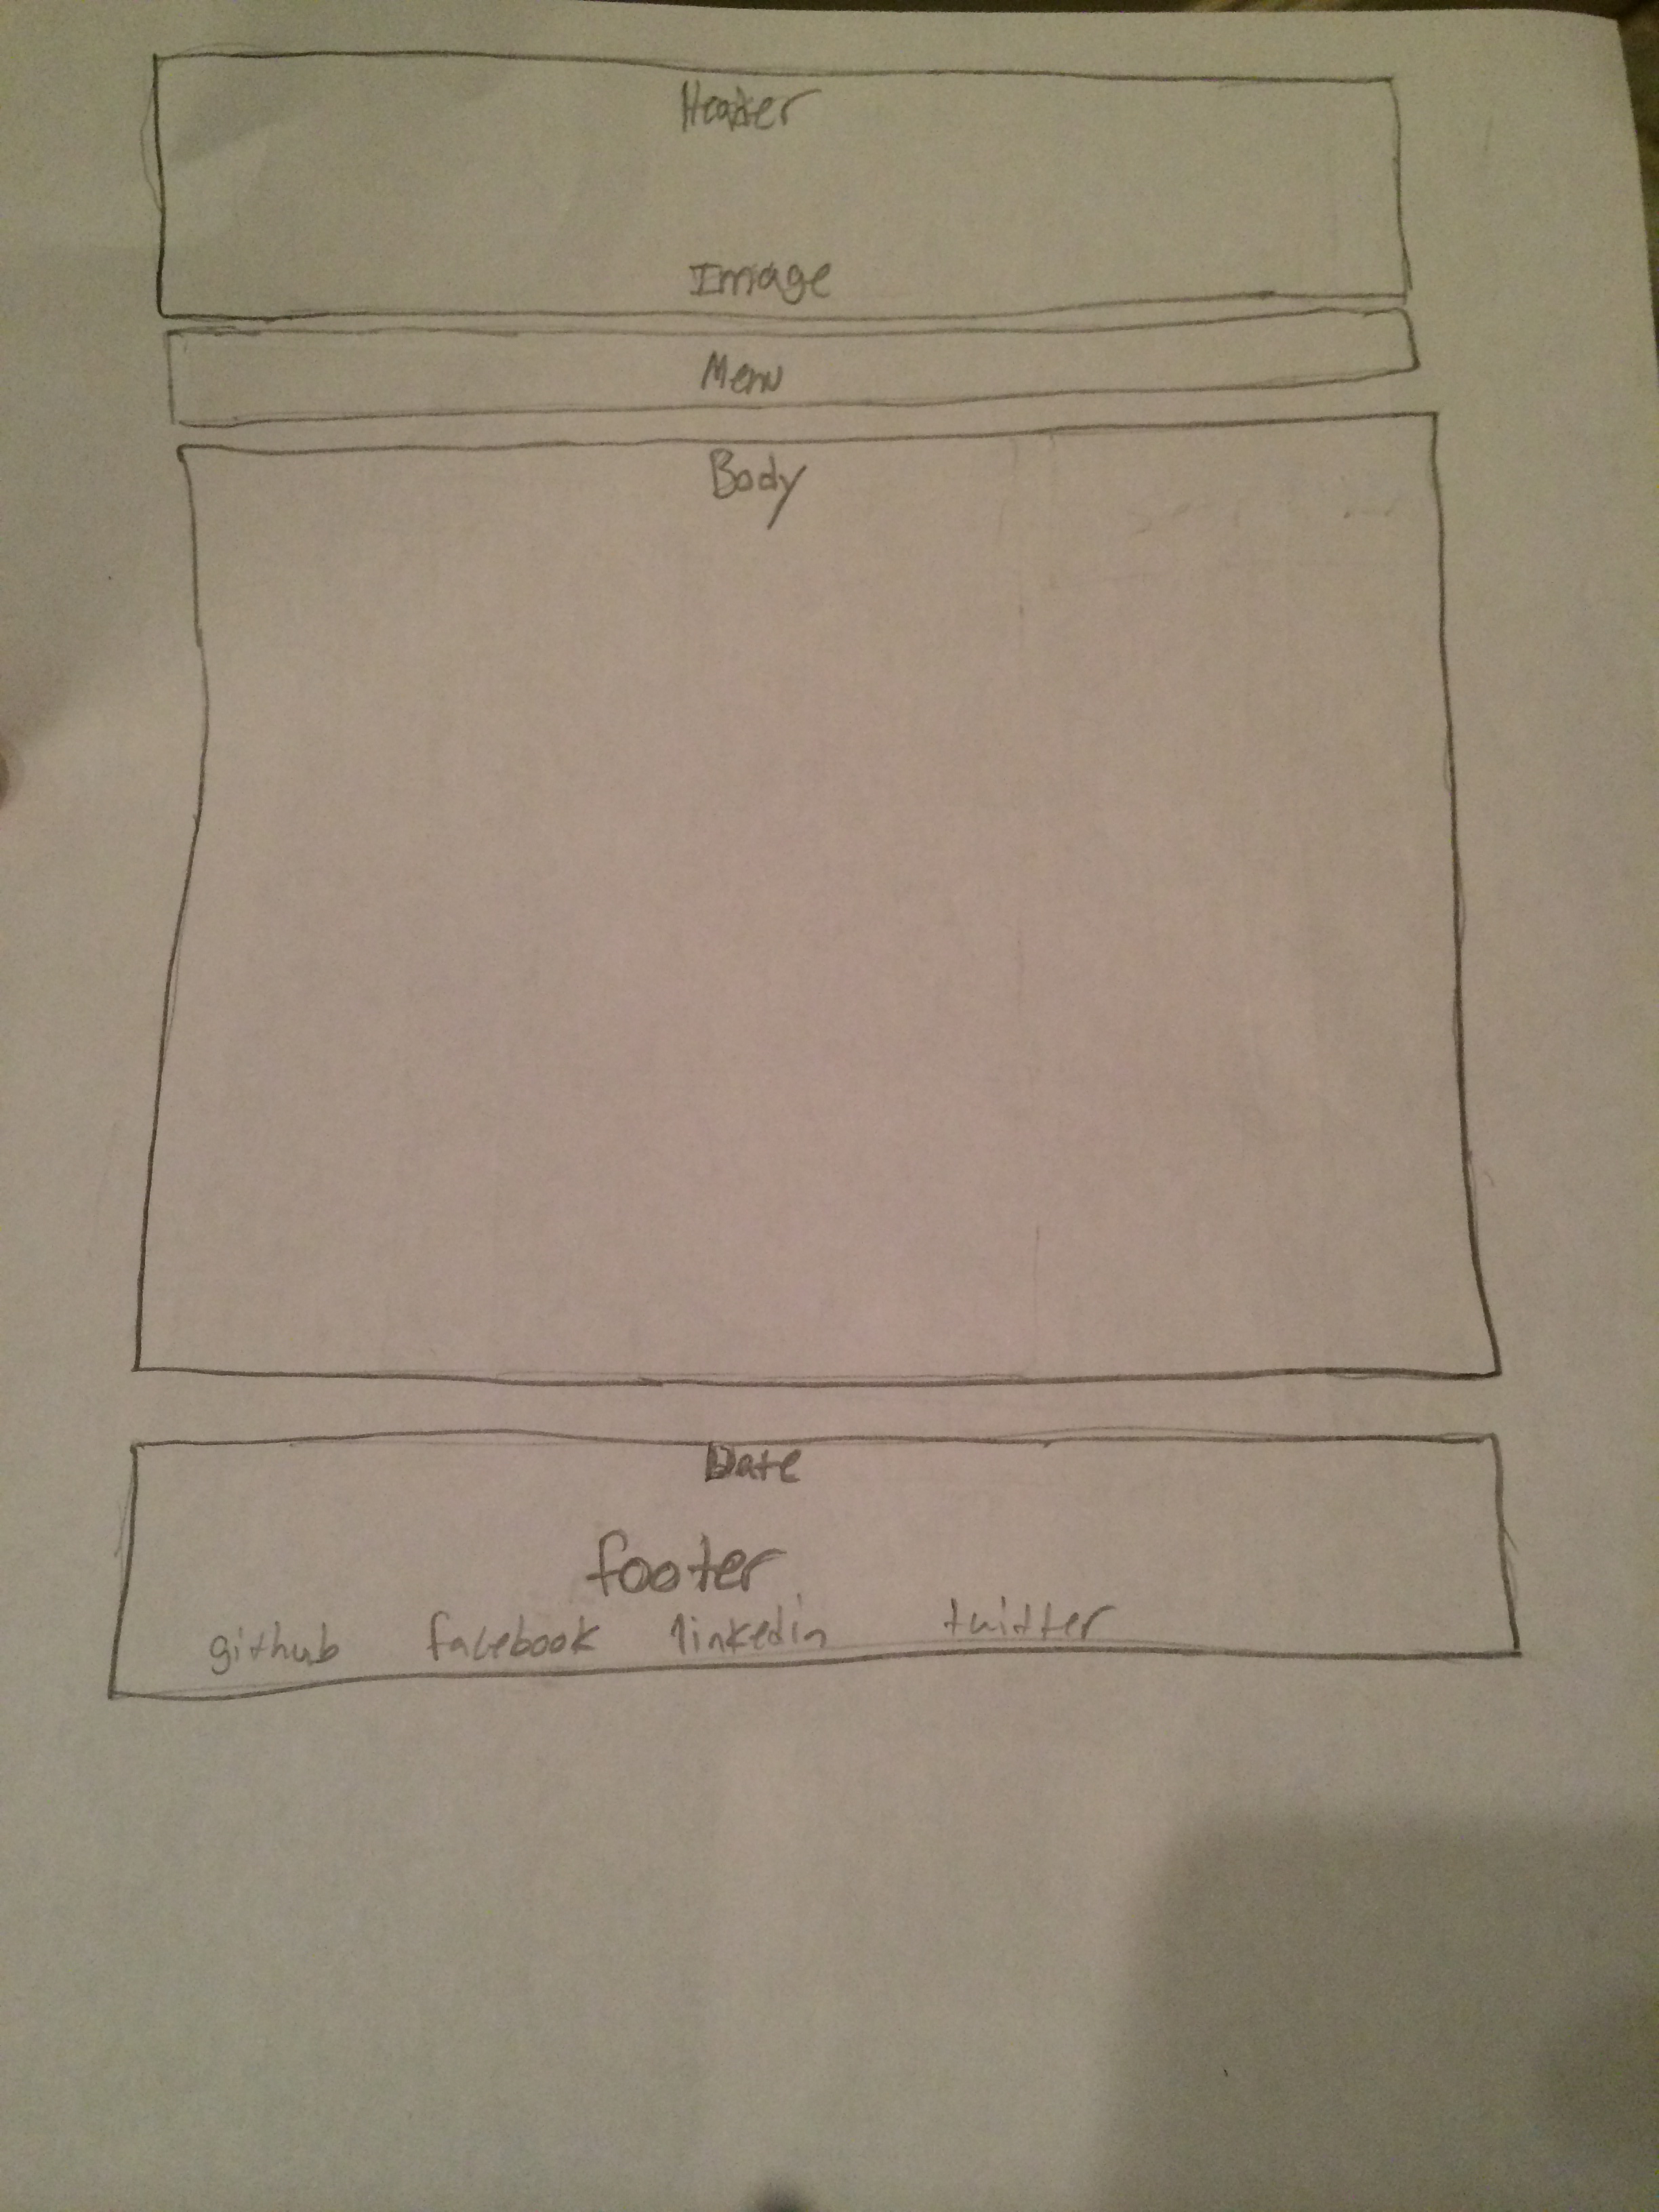 Header
Image
Menu
Body
Date
footer
github facebook linkedin twitter